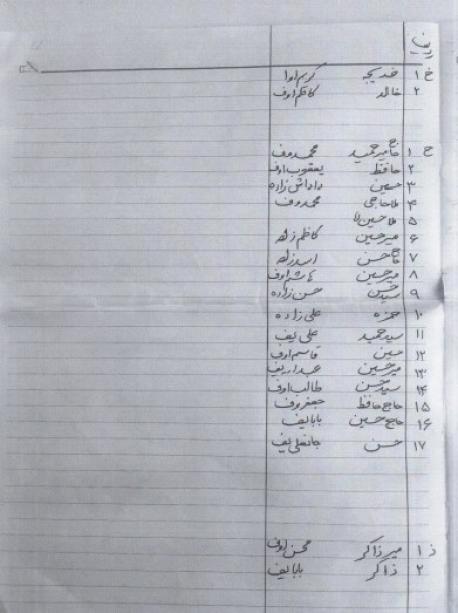 ردیف
خ ۱ خدیجه کرم اوا
۲ خالد کاظم اوف
ح ۱ حاج میرحمید محمدوف
۲ حافظ یعقوب اوف
۳ حسین داداش زاده
۴ ملا حاجی محمدوف
۵ ملا حسین
۶ میرحسین کاظم زاده
۷ حاج حسن اسدزاده
۸ میرحسین
۹ سید حسن حسن زاده
۱۰ حمزه علی زاده
۱۱ سید حمید علی یف
۱۲ حسین قاسم اوف
۱۳ میرحسین
۱۴ سید حسن طالب اوف
۱۵ حاج حافظ جعفروف
۱۶ حاج حسین بابایف
۱۷ حسن جانعلی یف
ذ ۱ میر ذاکر محسن اوف
۲ ذاکر بابایف